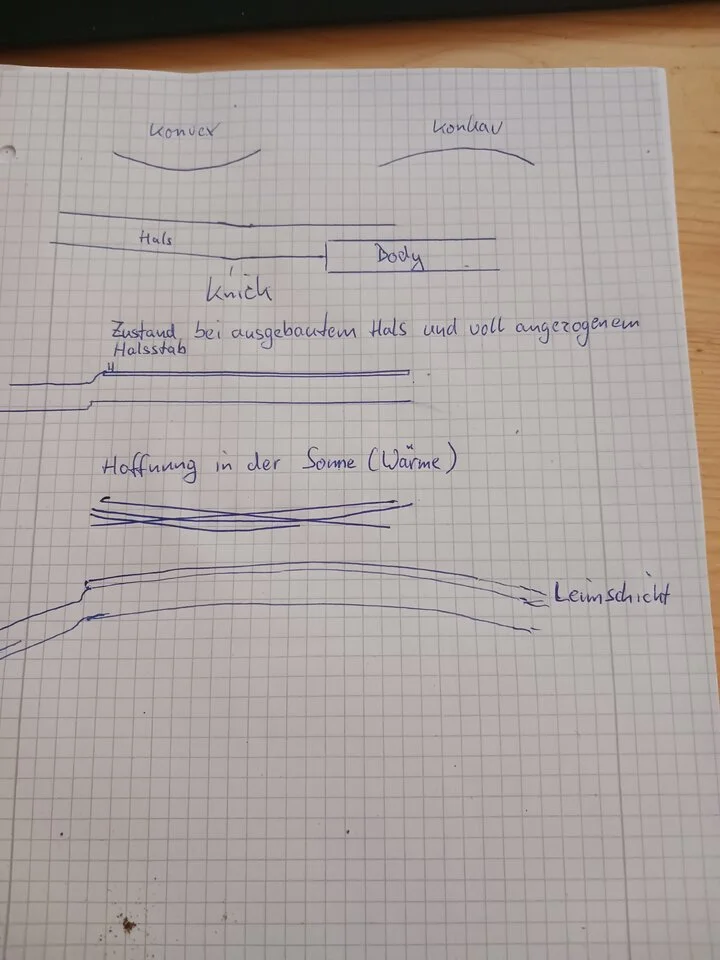 Konvex
Konkav
Hals
Body
Knick
Zustand bei ausgebautem Hals und voll angezogenem
Halsstab
Hoffnung in der Sonne (Wärme)
Leimschicht